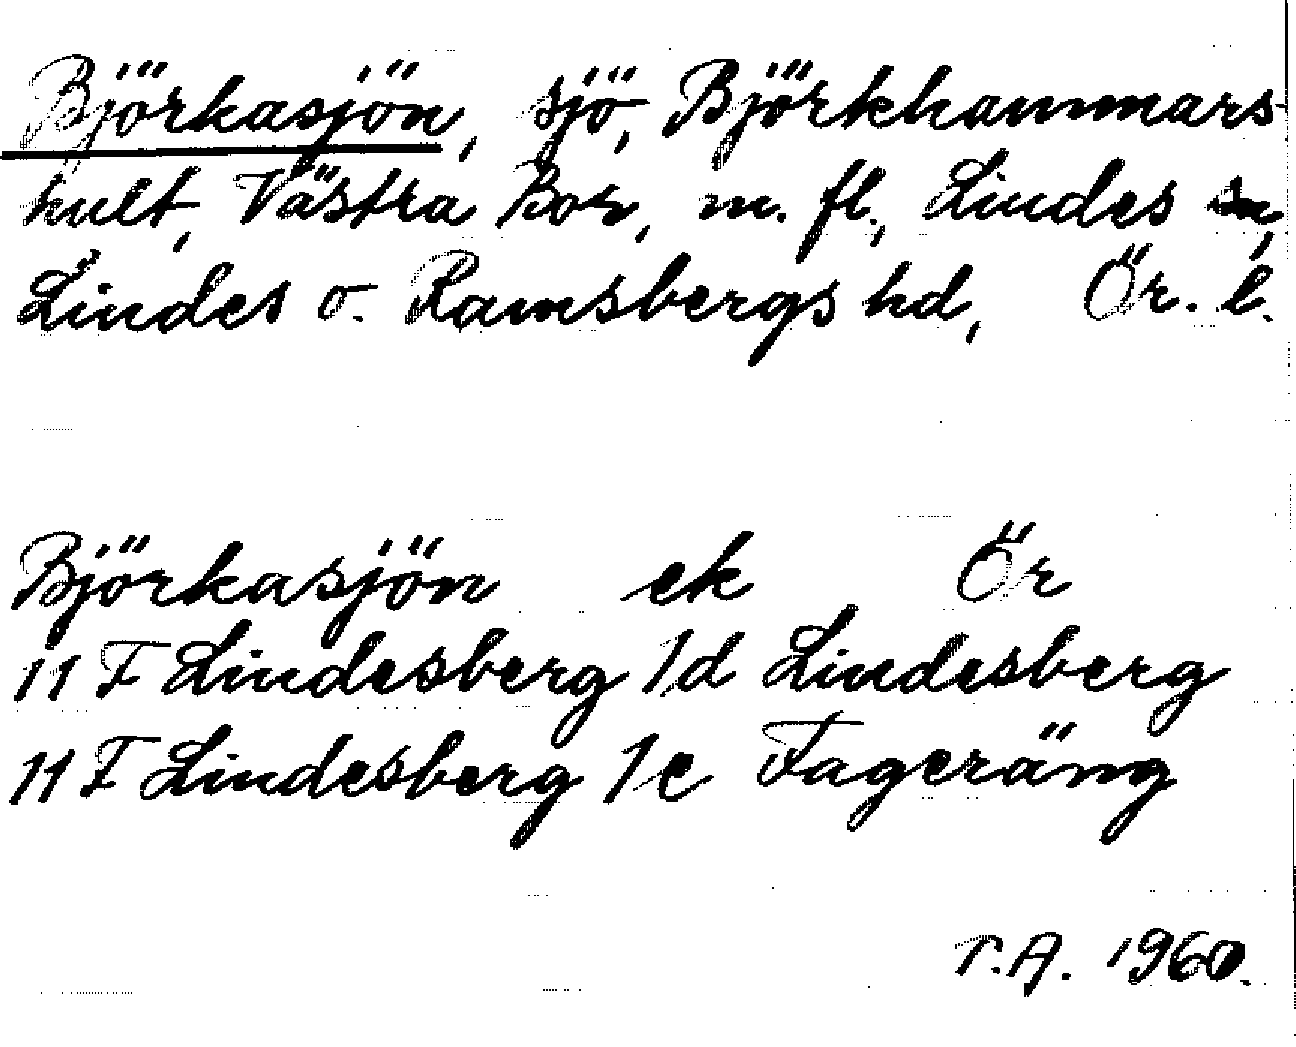 Björkasjön, sjö, Björkhammars-
hult, Västra Bor, m. fl., Lindes sn,
Lindes o. Ramsbergs hd, Ör. l.
Björkasjön ek Ör
11 F Lindesberg 1d Lindesberg
11 F Lindesberg 1e Fageräng
T.A. 1960.